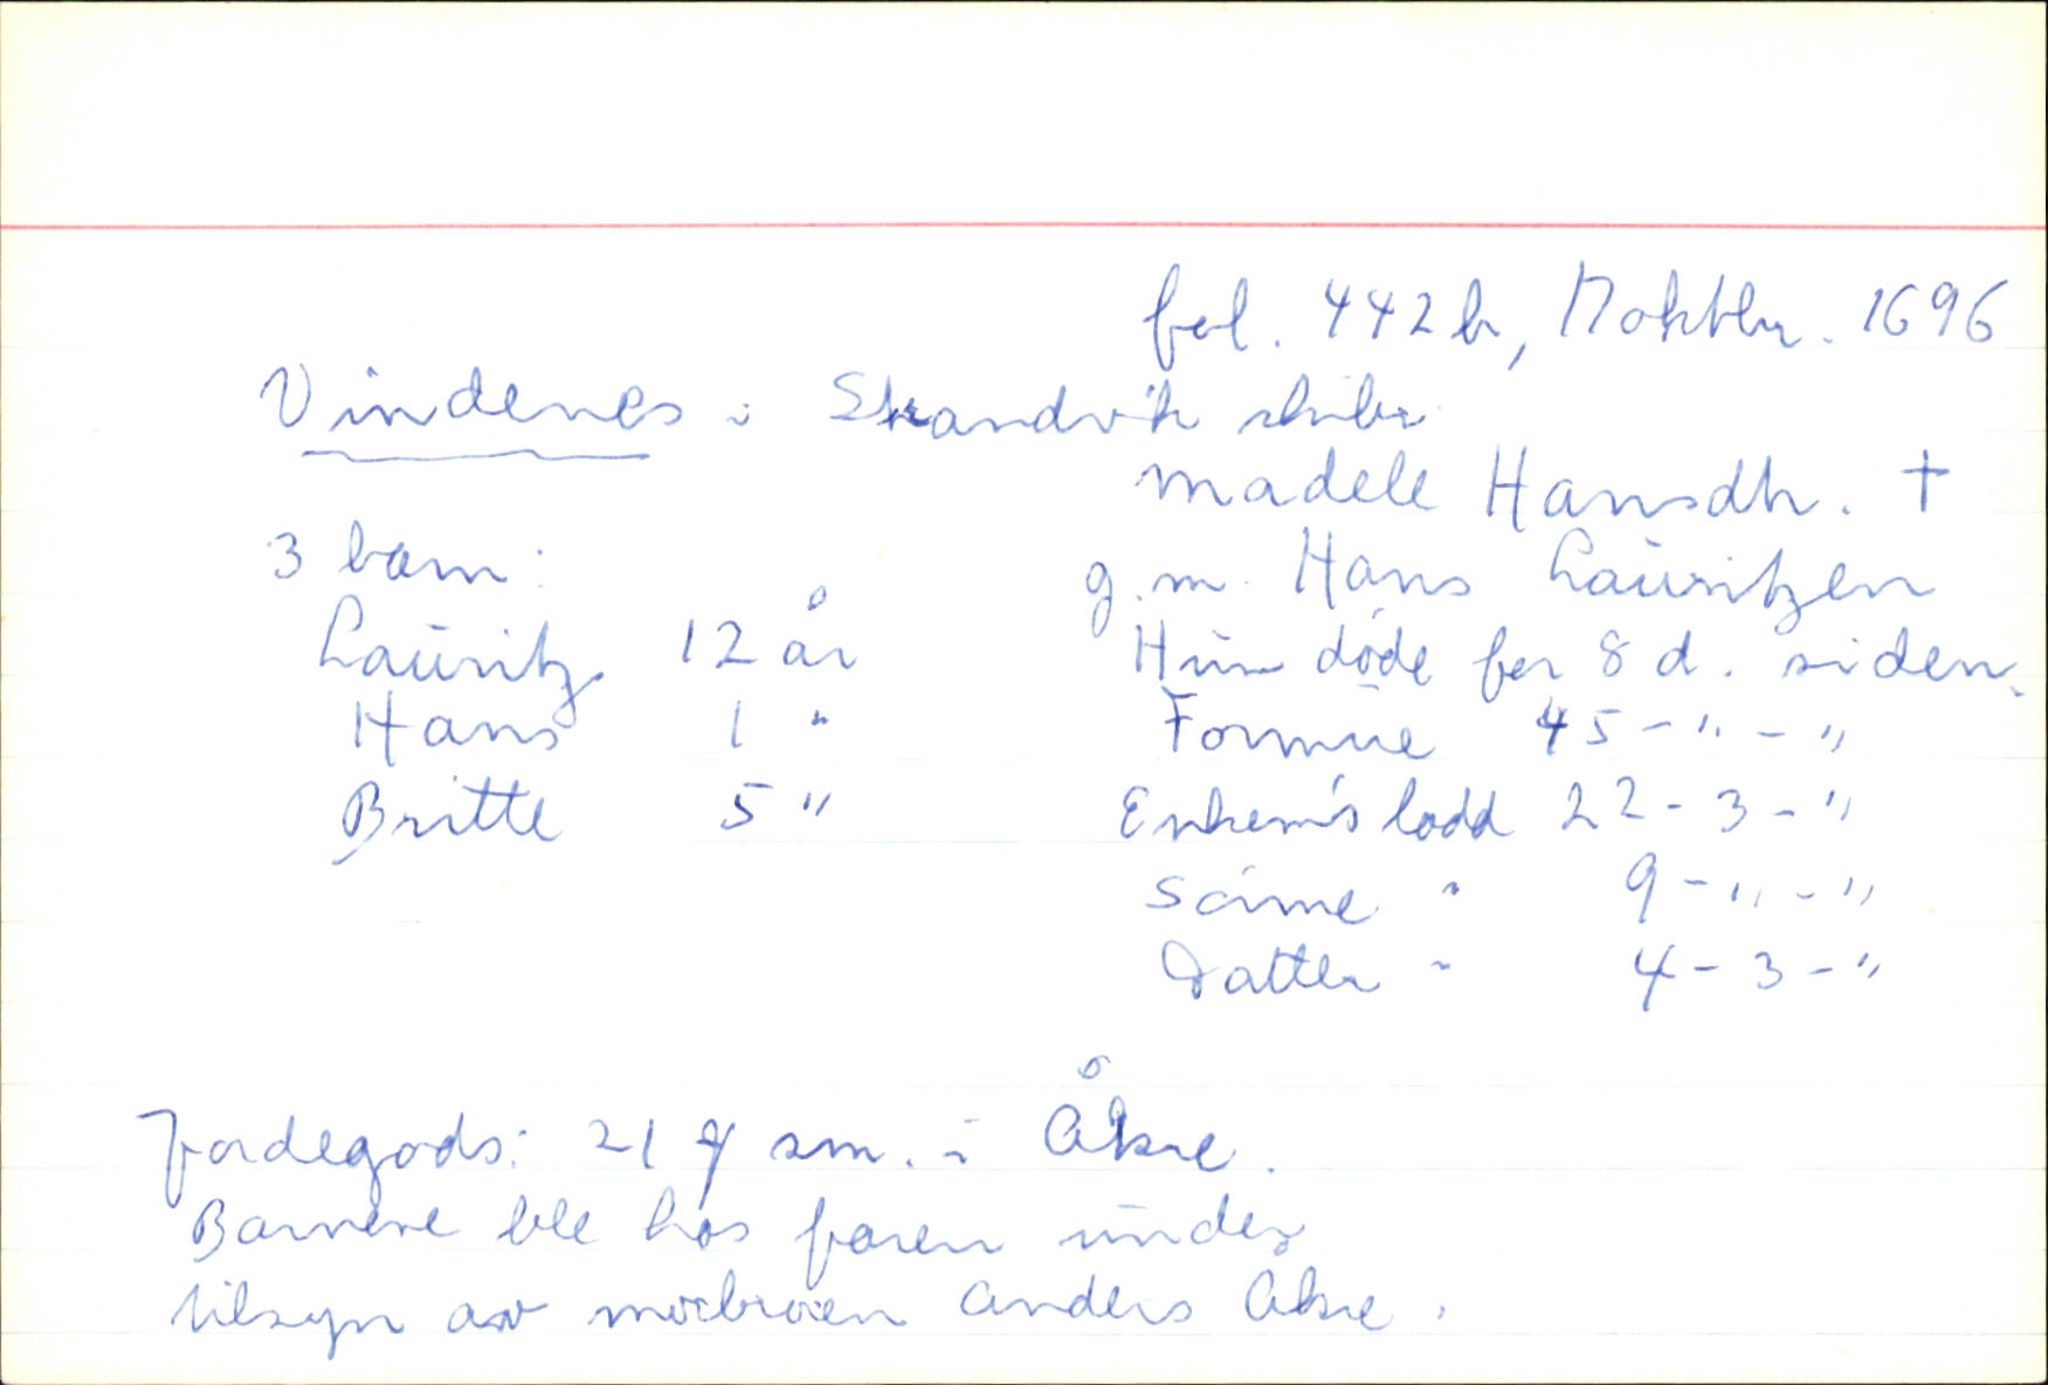 fol. 442b, 17 oktbr. 1696
Vindenes i Strandvik skibr
Madele Hansdtr. †
3 barn:
g.m. Hans Lauritzen
Lauritz 12 år
Hun døde for 8 d. siden.
Hans 1 "
Formue 45 - " - "
Britte 5 "
Enkem's lodd 22 - 3 - "
Sønne " 9 - " - "
Datter " 4 - 3 - "
Jordegods: 21 sm. i Åkre.
Barnene ble hos faren under
tilsyn av morbroren Anders Åkre.